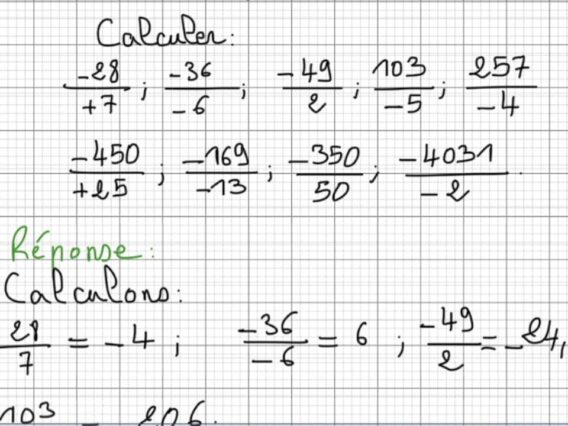 Calculer:
-28/+7 ; -36/-6 ; -49/2 ; 103/-5 ; 257/-4
-450/+25 ; -169/-13 ; -350/50 ; -4031/-2 .
Réponse:
Calculons:
28/7 = -4 ; -36/-6 = 6 ; -49/2 = -24,
103